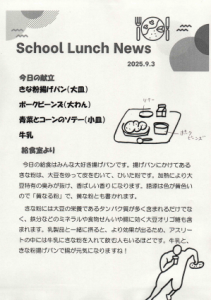 School Lunch News
2025.9.3
今日の献立
きな粉揚げパン(大皿)
ポークビーンズ(大わん)
青菜とコーンのソテー(小皿)
牛乳
給食室より
今日の給食はみんな大好き揚げパンです。揚げパンにかけてある
きな粉は、大豆を炒って皮をむいて、ひいた粉です。加熱により大
豆特有の臭みが抜け、香ばしい香りになります。語源は色が黄色い
ので「黄なる粉」で、黄な粉とも書かれます。
きな粉には大豆の栄養であるタンパク質が多く含まれるだけでな
く、鉄分などのミネラルや食物せんいや腸に効く大豆オリゴ糖も含
まれます。乳製品と一緒に摂ると、より効果が出るため、アスリート
の中には牛乳にきな粉を入れて飲む人もいるほどです。牛乳と、
きな粉揚げパンで腸が元気になりますね！